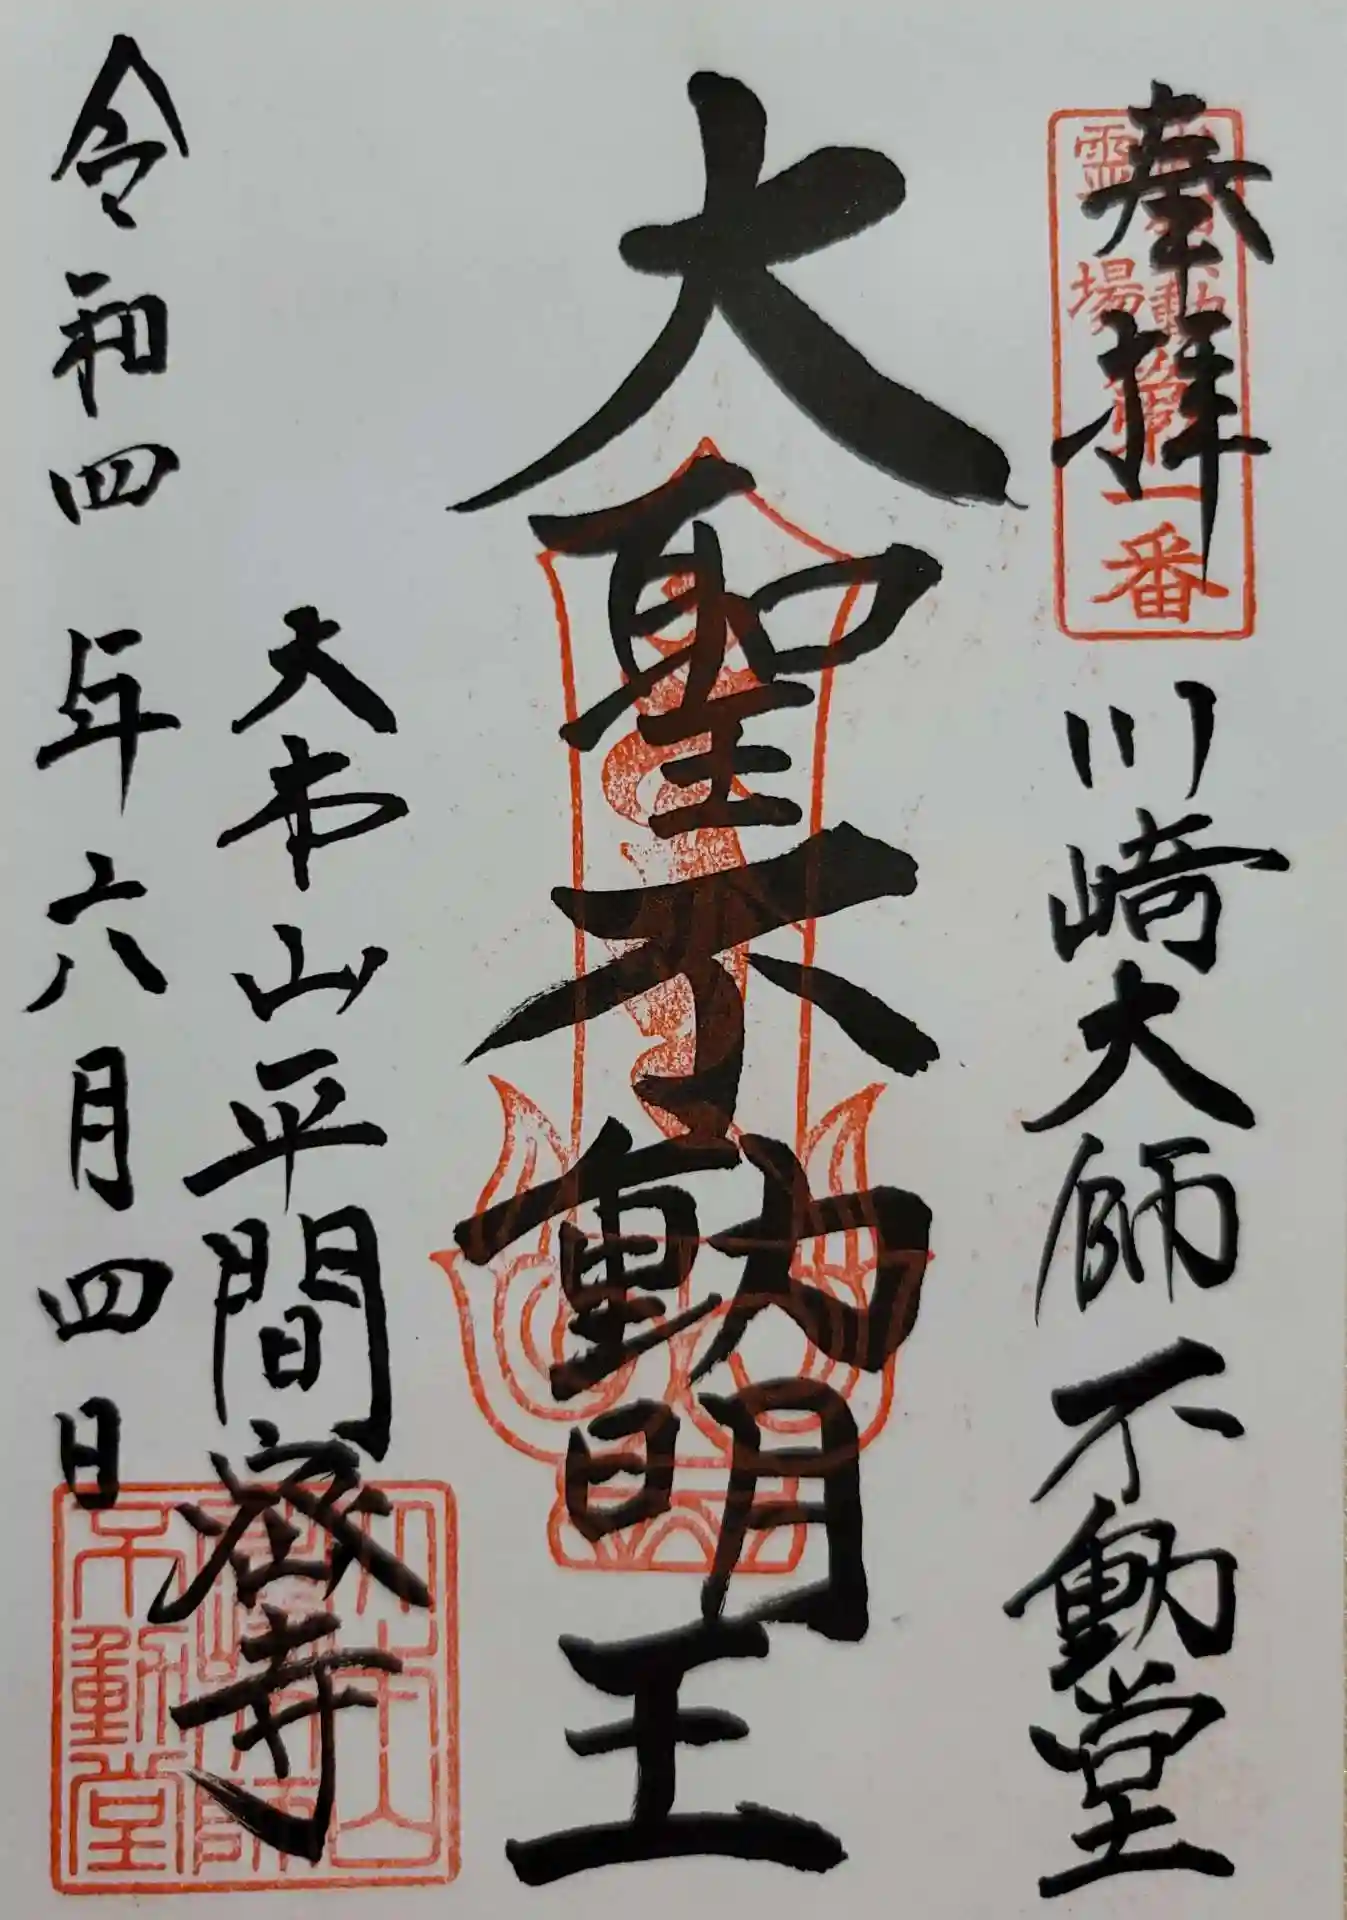 奉拝
川崎大師不動堂
大聖不動明王
大本山平間密寺
令和四年六月四日
霊場
第一番
大本山
川崎大師
不動堂